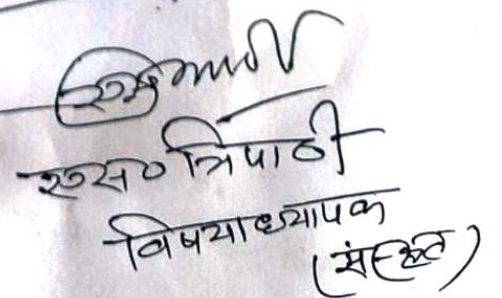 एस० त्रिपाठी
विषयाध्यापक
(संस्कृत)